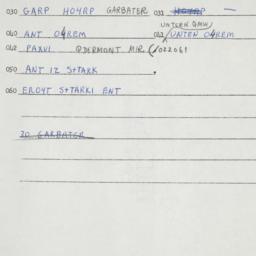 030 GARP HO4RP GARBATER 031 HO4RP —
UNTEN QMW/
040 ANT O4REM 041 UNTEN O4REM
042 PAXVI @DERMONT MIR (/022061
050 ANT IZ S+TARK .
060 ERO4T S+TARKI ENT
20 GARBATER